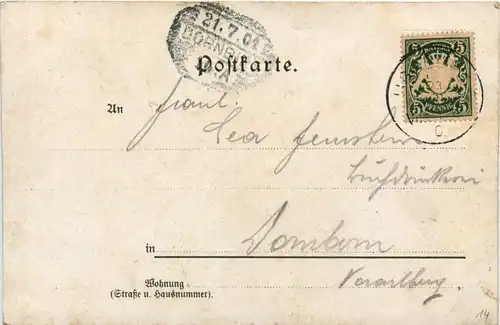 21.7.04
DORNBI
Postkarte.
5 5
5 PFENNIG 5
An Fräul.
Lea
Buchdruckerei
in Dornbirn
Vorarlberg.
Wohnung
(Straße u. Hausnummer).
14